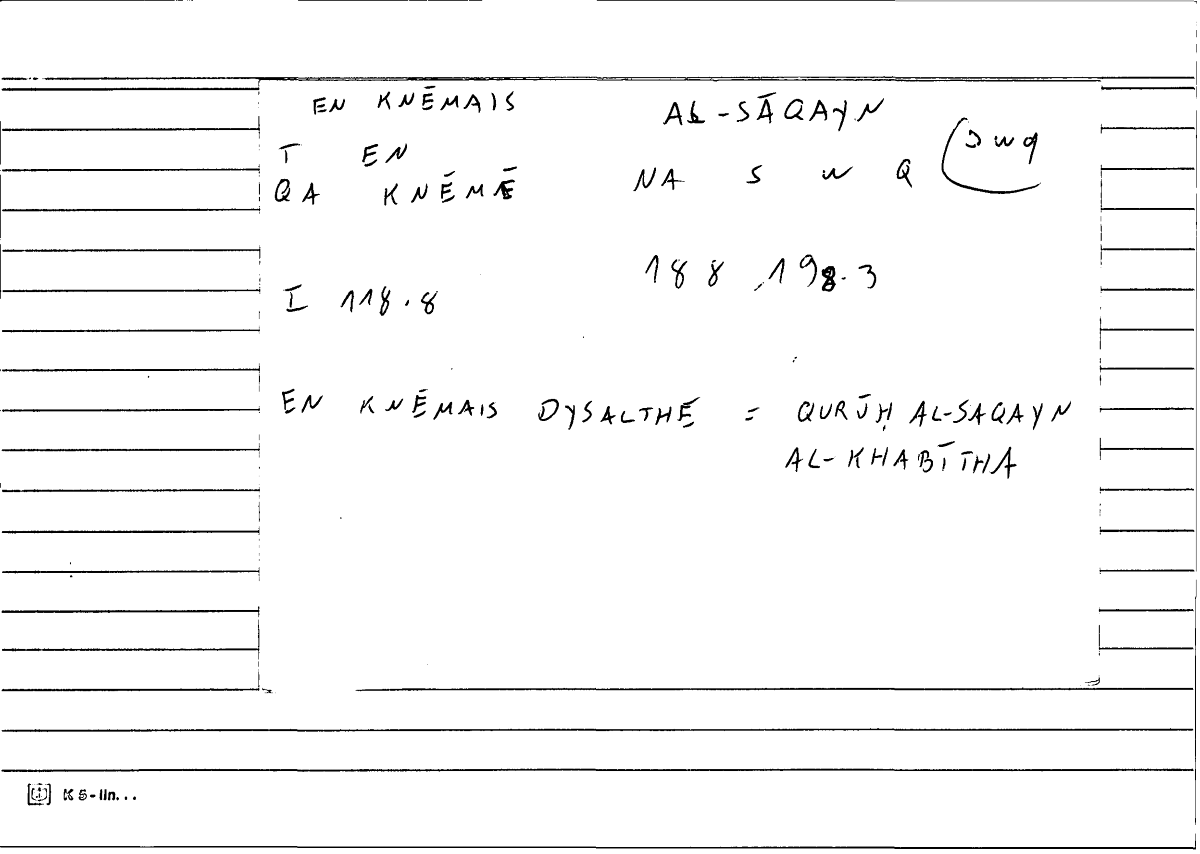 EN KNĒMAIS AL-SĀQAYN
T EN
QA KNĒMĒ NA S W Q (SWQ
I 118.8 188, 198.3
EN KNĒMAIS DYSALTHĒ = QURŪḤ AL-SAQAYN
AL-KHABĪTHA
K 5-lin...